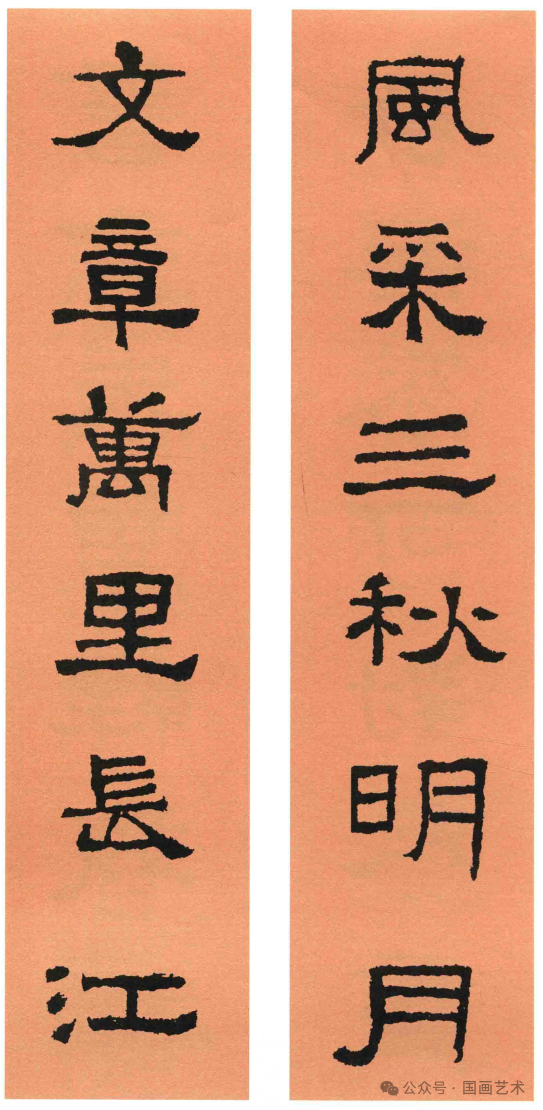 風采三秋明月
文章萬里長江
公众号 · 国画艺术